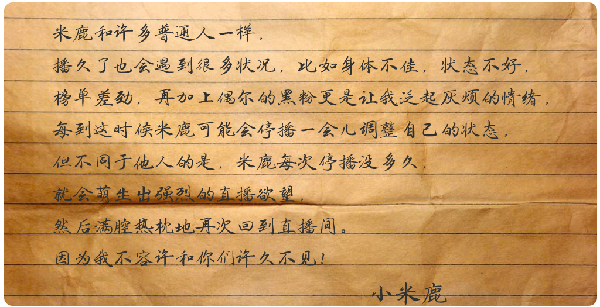 米鹿和许多普通人一样,
播久了也会遇到很多状况, 比如身体不佳, 状态不好,
榜单差劲, 再加上偶尔的黑粉更是让我泛起灰烦的情绪,
每到这时候米鹿可能会停播一会儿调整自己的状态,
但不同于他人的是, 米鹿每次停播没多久,
就会萌生出强烈的直播欲望,
然后满腔热枕地再次回到直播间。
因为我不容许和你们许久不见!
小米鹿